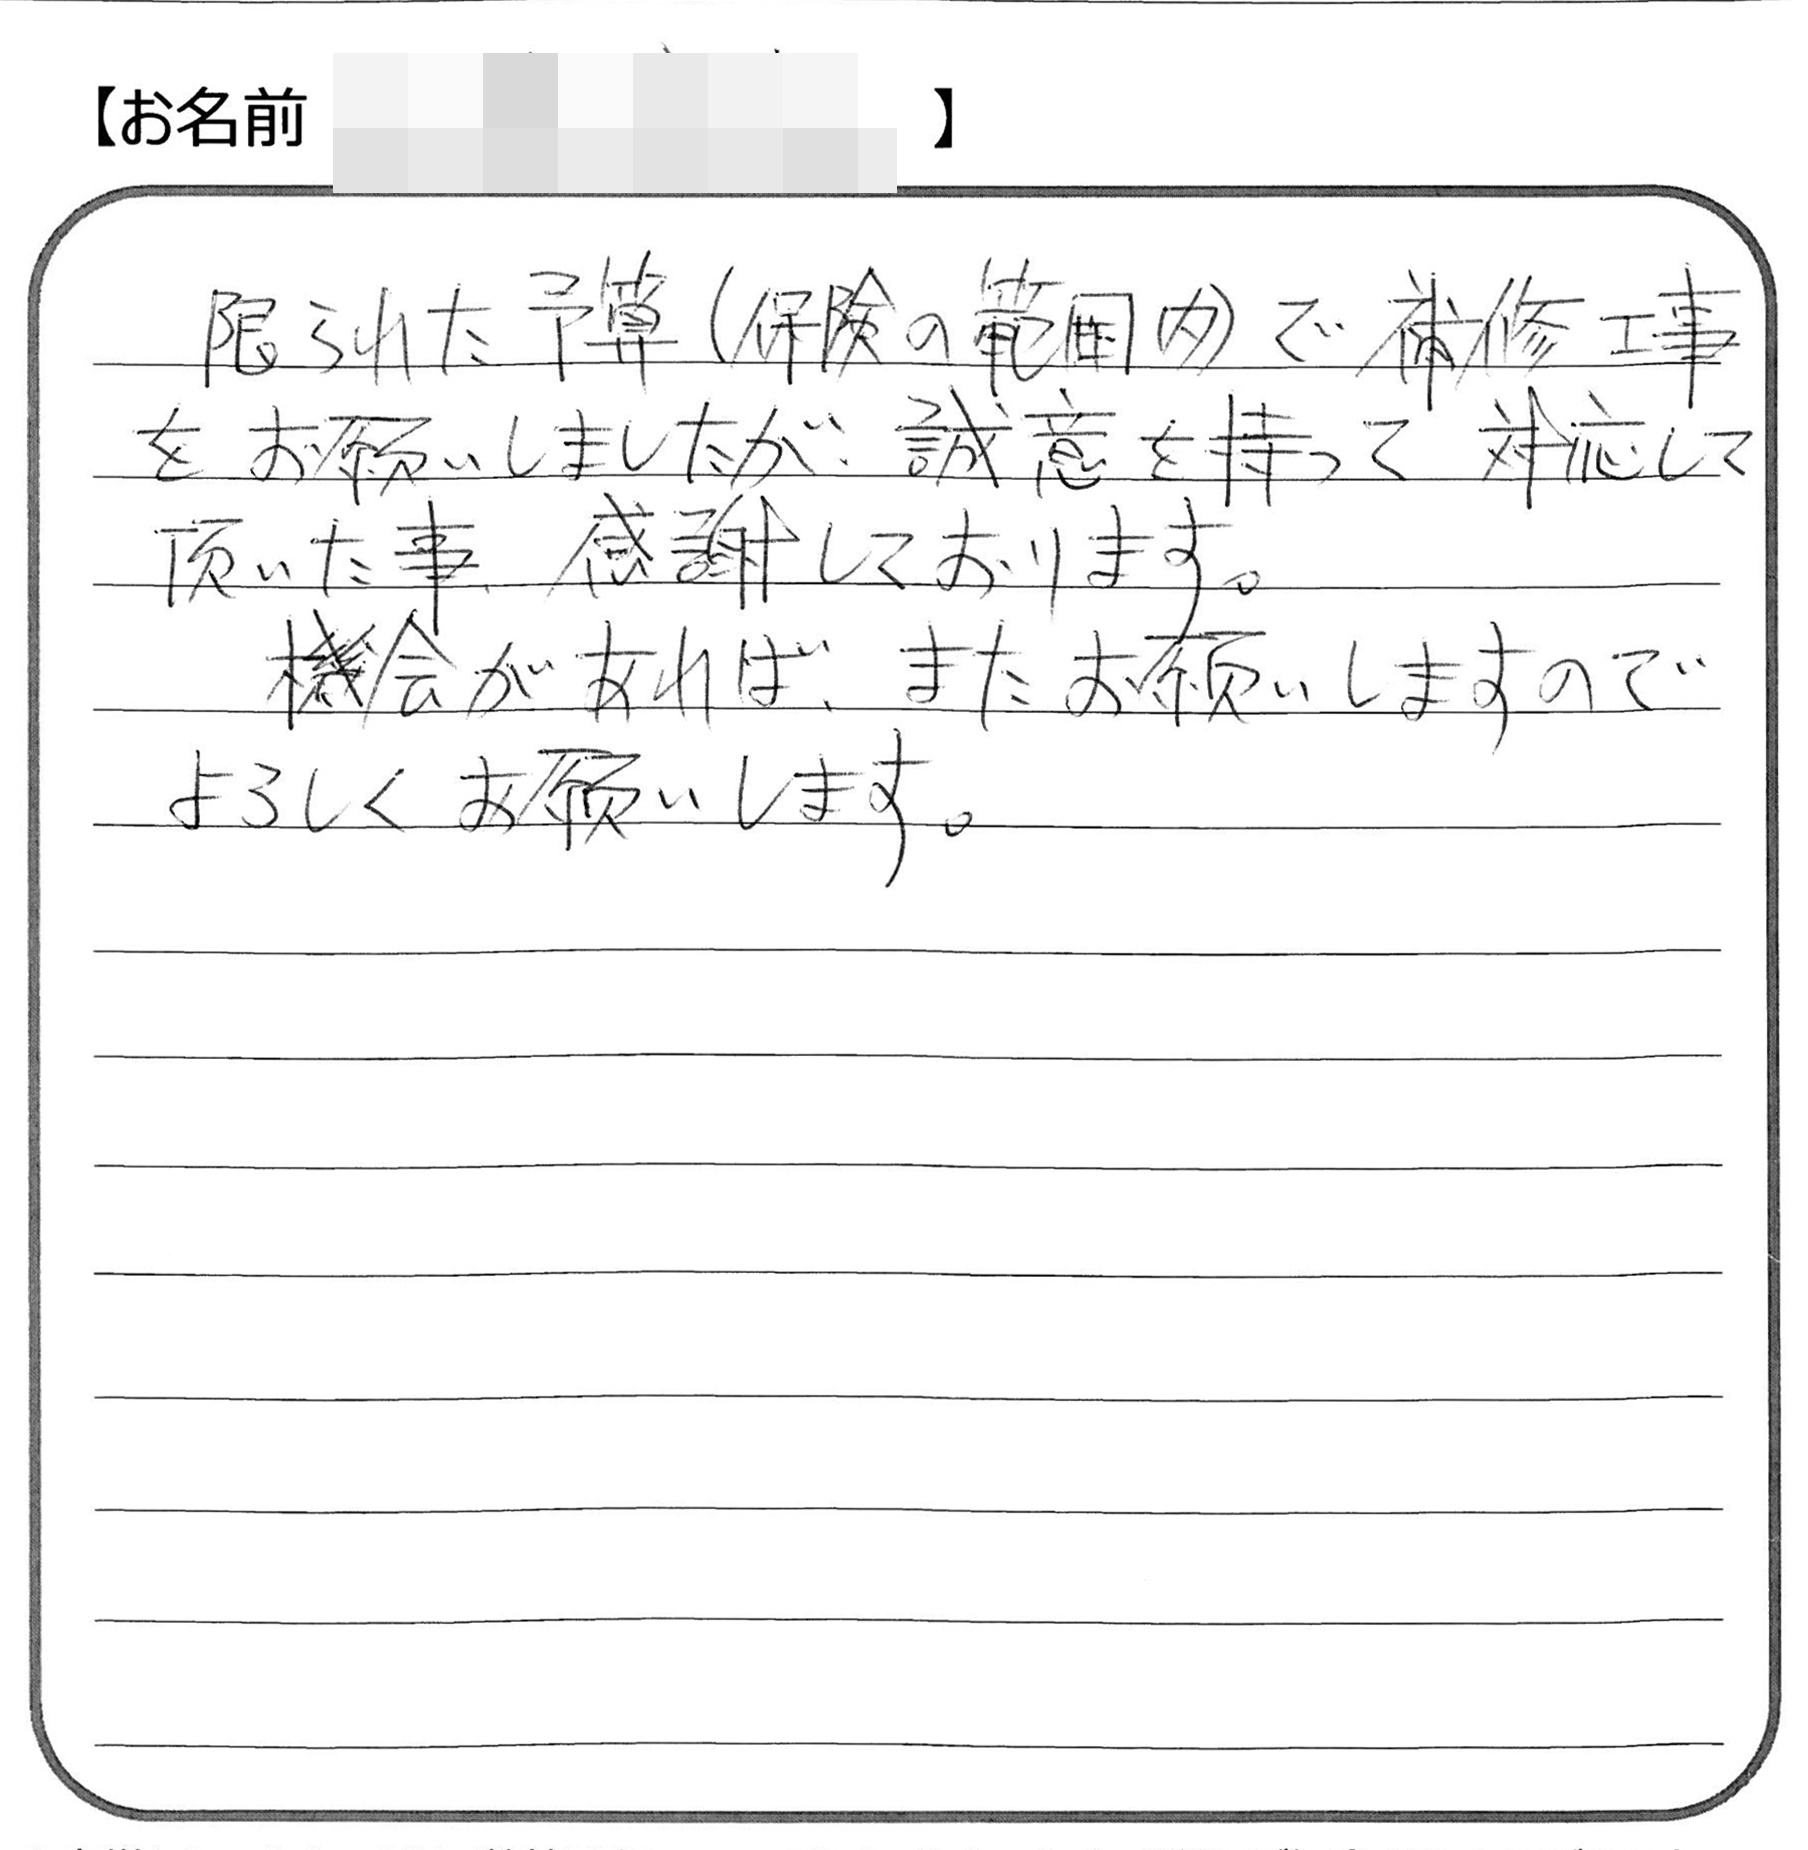 【お名前 】
限られた予算(保険の範囲内)で補修工事
をお願いしましたが、誠意を持って対応して
頂いた事、感謝しております。
機会があれば、またお願いしますので
よろしくお願いします。